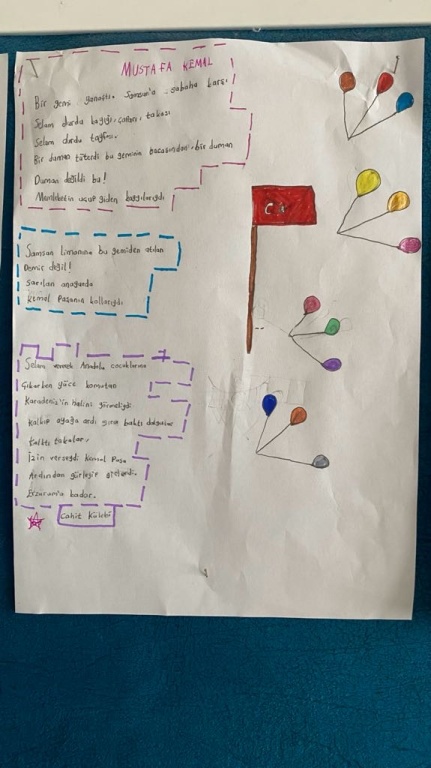 MUSTAFA KEMAL
Bir gemi yanaştı. Samsun'a sabaha karşı
Selam durdu kayığı, çaparı, takası
Selam durdu tayfası.
Bir duman tüterdi bu geminin bacasından, bir duman
Duman değildi bu!
Memleketin uçup giden kaygılarıydı
Samsun limanına bu gemiden atılan
Demir değil!
Sarılan anayurda
Kemal Paşanın kollarıydı
Selam vererek Anadolu çocuklarına
Çıkarken yüce komutan
Karadeniz'in halini görmeliydi
Kalkıp ayağa ardı sıra baktı dalgalar
Kalktı takalar,
İzin verseydi Kemal Paşa
Ardından gürleyip giderdi.
Erzurum'a kadar.
Cahit Külebi